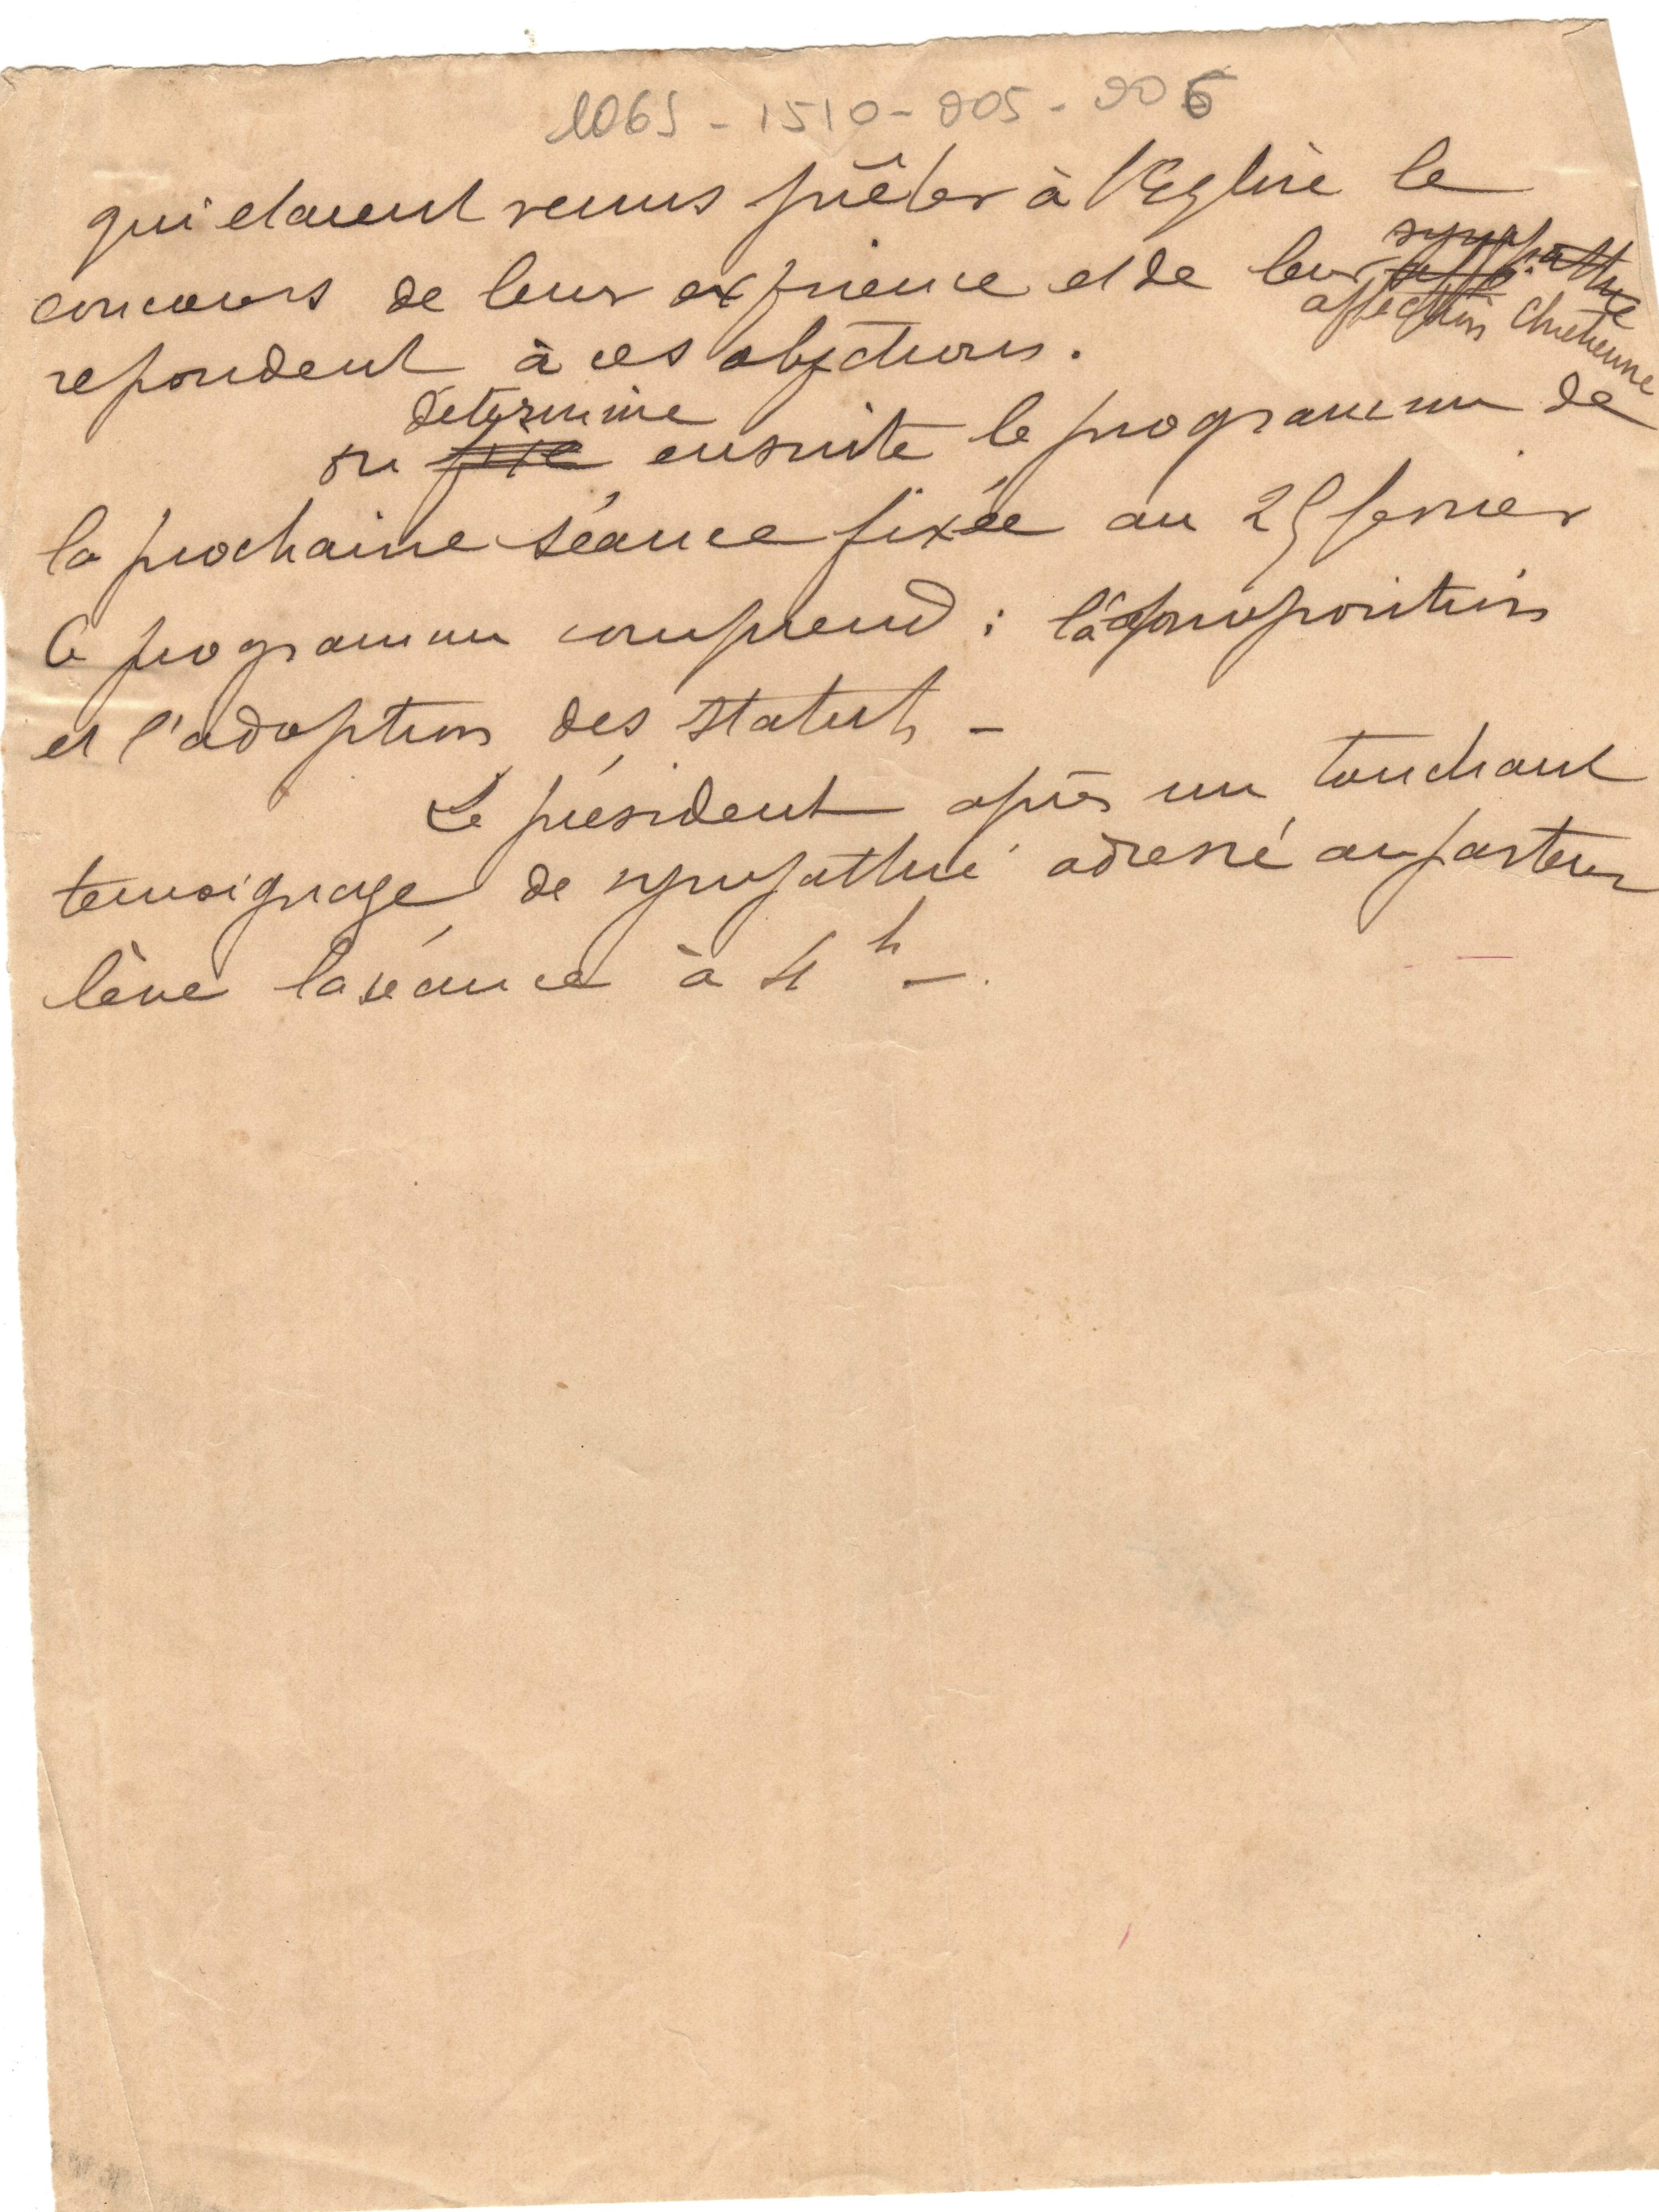 1065 - 1510 - 905 - 906
qui etaient venus prêter à l'Eglise le
concours de leur expérience et de leur sympathie
affection chretienne
repondent à ces objections.
determine
on fixe ensuite le programme de
la prochaine séance fixée au 25 fevrier
le programme comprend : la proposition
et l'adoption des statuts -
Le président après un touchant
temoignage de sympathie adressé au pasteur
lève la séance à 4 h -.